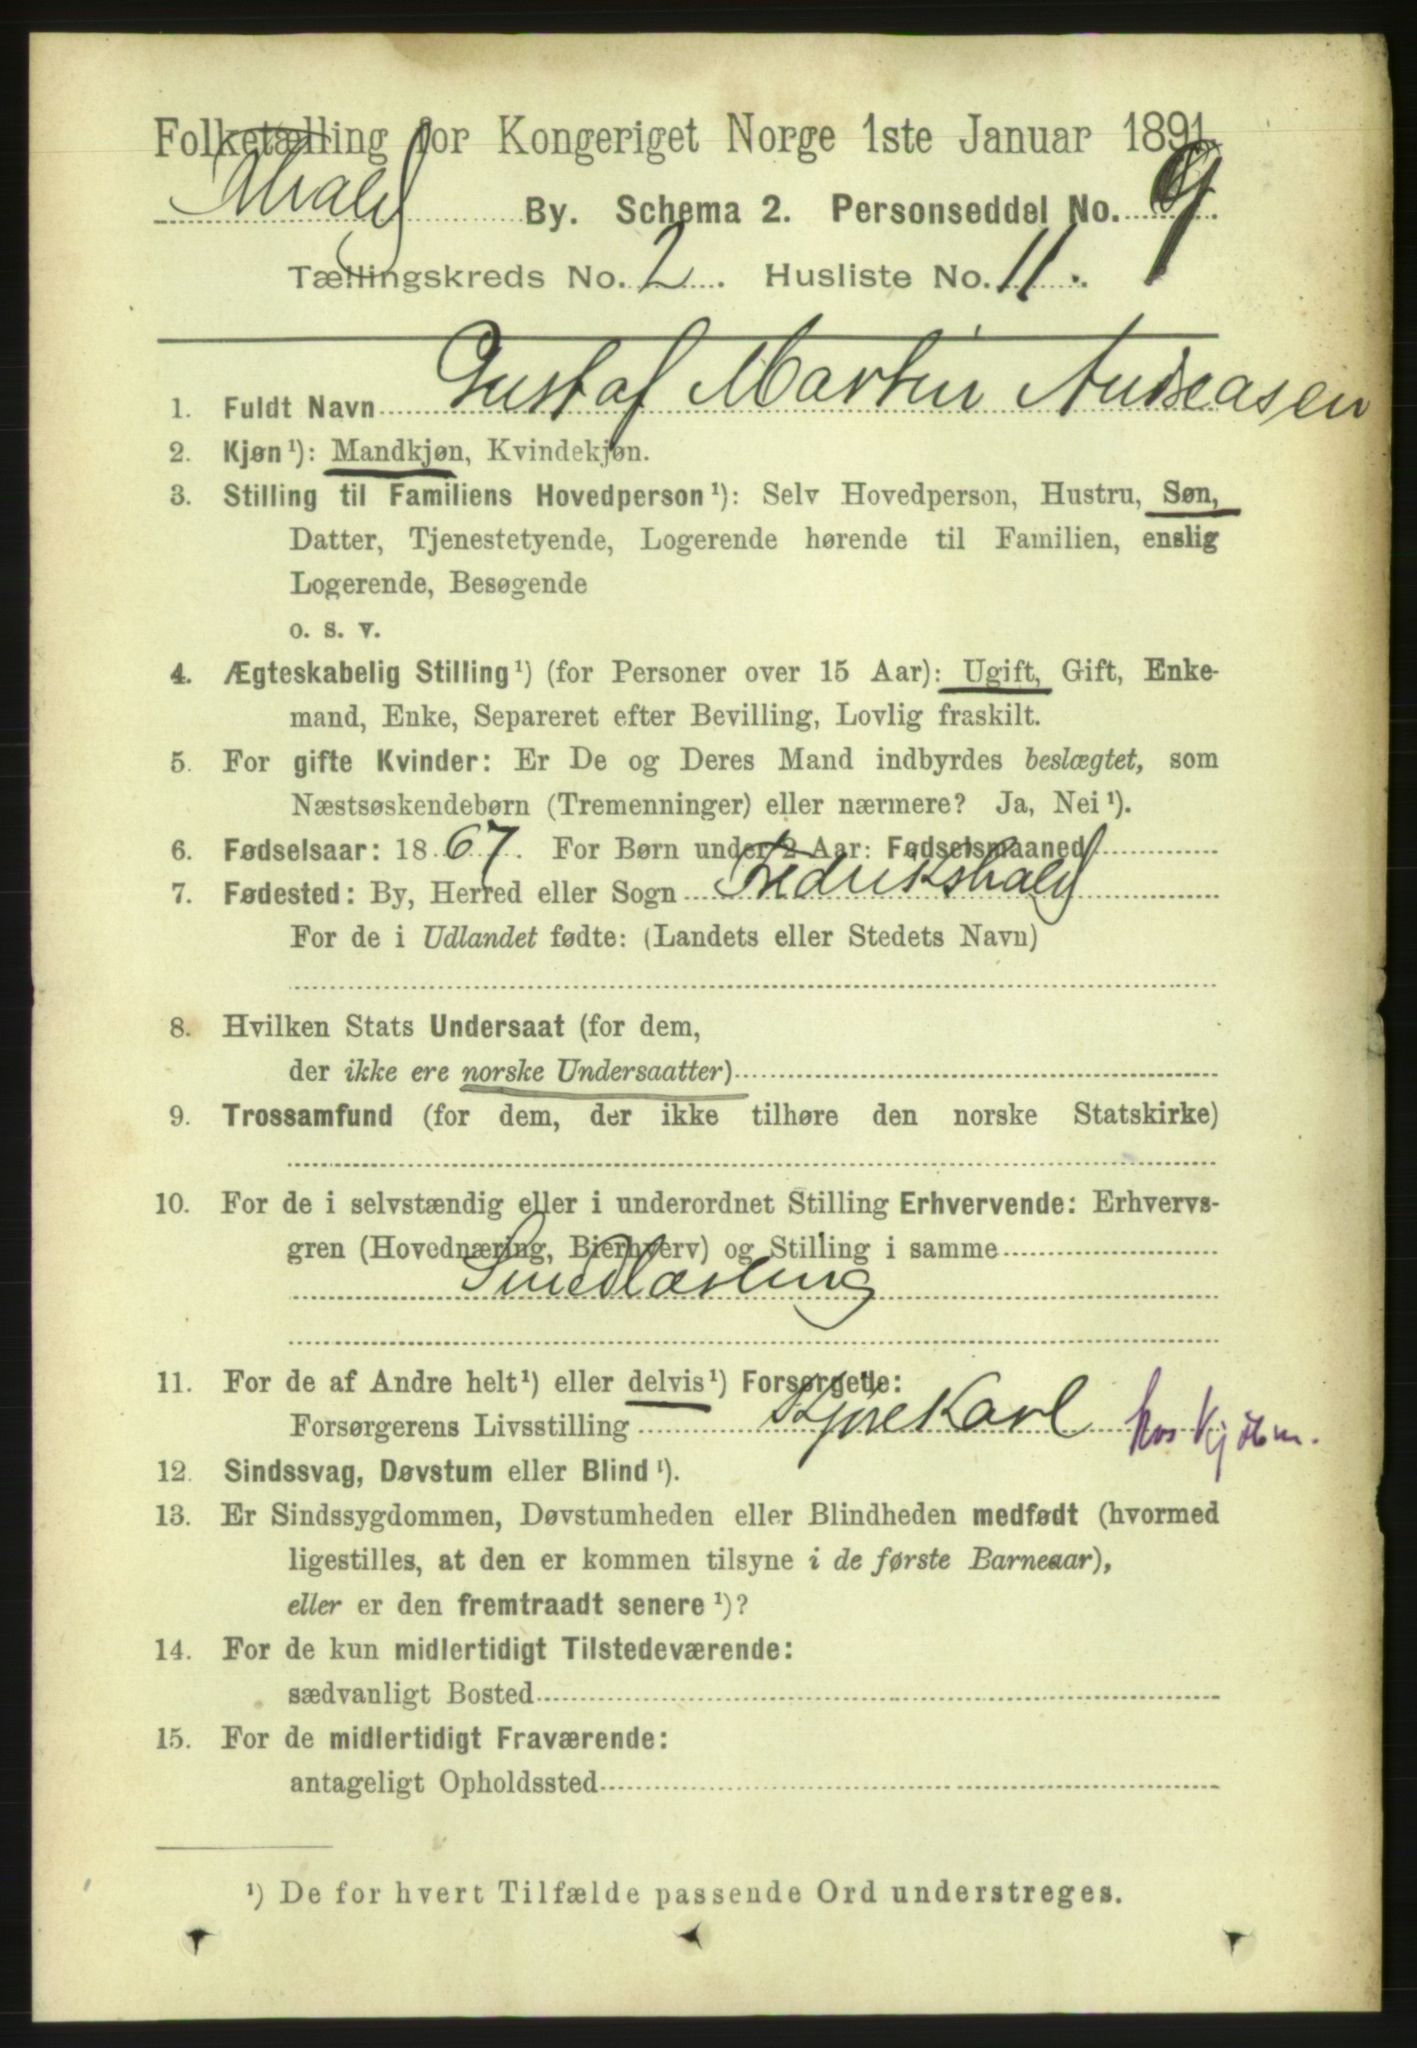 Folketælling for Kongeriget Norge 1ste Januar 1891.
Fhald By. Schema 2. Personseddel No. 9.
Tællingskreds No. 2. Husliste No. 11.
1. Fuldt Navn Gustaf Martin Andreasen
2. Kjøn ¹): Mandkjøn, Kvindekjøn.
3. Stilling til Familiens Hovedperson ¹): Selv Hovedperson, Hustru, Søn,
Datter, Tjenestetyende, Logerende hørende til Familien, enslig
Logerende, Besøgende
o. s. v.
4. Ægteskabelig Stilling ¹) (for Personer over 15 Aar): Ugift, Gift, Enke-
mand, Enke, Separeret efter Bevilling, Lovlig fraskilt.
5. For gifte Kvinder: Er De og Deres Mand indbyrdes beslægtet, som
Næstsøskendebørn (Tremenninger) eller nærmere? Ja, Nei ¹).
6. Fødselsaar: 1867. For Børn under 2 Aar: Fødselsmaaned
7. Fødested: By, Herred eller Sogn Fredrikshald
For de i Udlandet fødte: (Landets eller Stedets Navn)
8. Hvilken Stats Undersaat (for dem,
der ikke ere norske Undersaatter)
9. Trossamfund (for dem, der ikke tilhøre den norske Statskirke)
10. For de i selvstændig eller i underordnet Stilling Erhvervende: Erhvervs-
gren (Hovednæring, Bierhverv) og Stilling i samme
Smedlærling
11. For de af Andre helt ¹) eller delvis ¹) Forsørgede:
Forsørgerens Livsstilling Kjørekarl hos Kjöbm.
12. Sindssvag, Døvstum eller Blind ¹).
13. Er Sindssygdommen, Døvstumheden eller Blindheden medfødt (hvormed
ligestilles, at den er kommen tilsyne i de første Barneaar),
eller er den fremtraadt senere ¹)?
14. For de kun midlertidigt Tilstedeværende:
sædvanligt Bosted
15. For de midlertidigt Fraværende:
antageligt Opholdssted
¹) De for hvert Tilfælde passende Ord understreges.